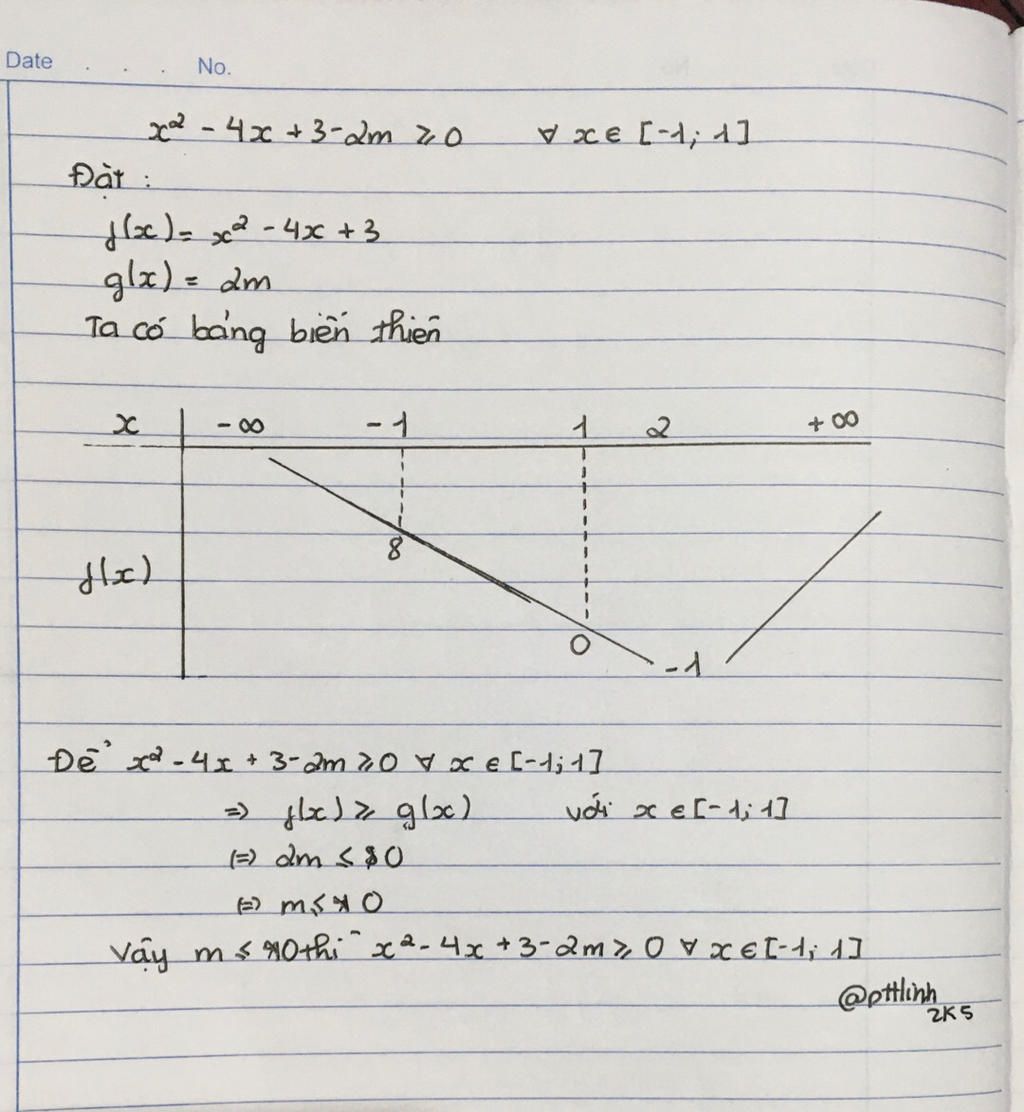 Date . . . No.
x² - 4x + 3 - 2m ≥ 0 ∀ x ∈ [-1; 1]
Đặt :
f(x) = x² - 4x + 3
g(x) = 2m
Ta có bảng biến thiên
x -∞ -1 1 2 +∞
f(x) 8 0 -1
Để x² - 4x + 3 - 2m ≥ 0 ∀ x ∈ [-1; 1]
=> f(x) ≥ g(x) với x ∈ [-1; 1]
(=) 2m ≤ 0
(=) m ≤ 0
Vậy m ≤ 0 thì x² - 4x + 3 - 2m ≥ 0 ∀ x ∈ [-1; 1]
@pttlinh
2K5